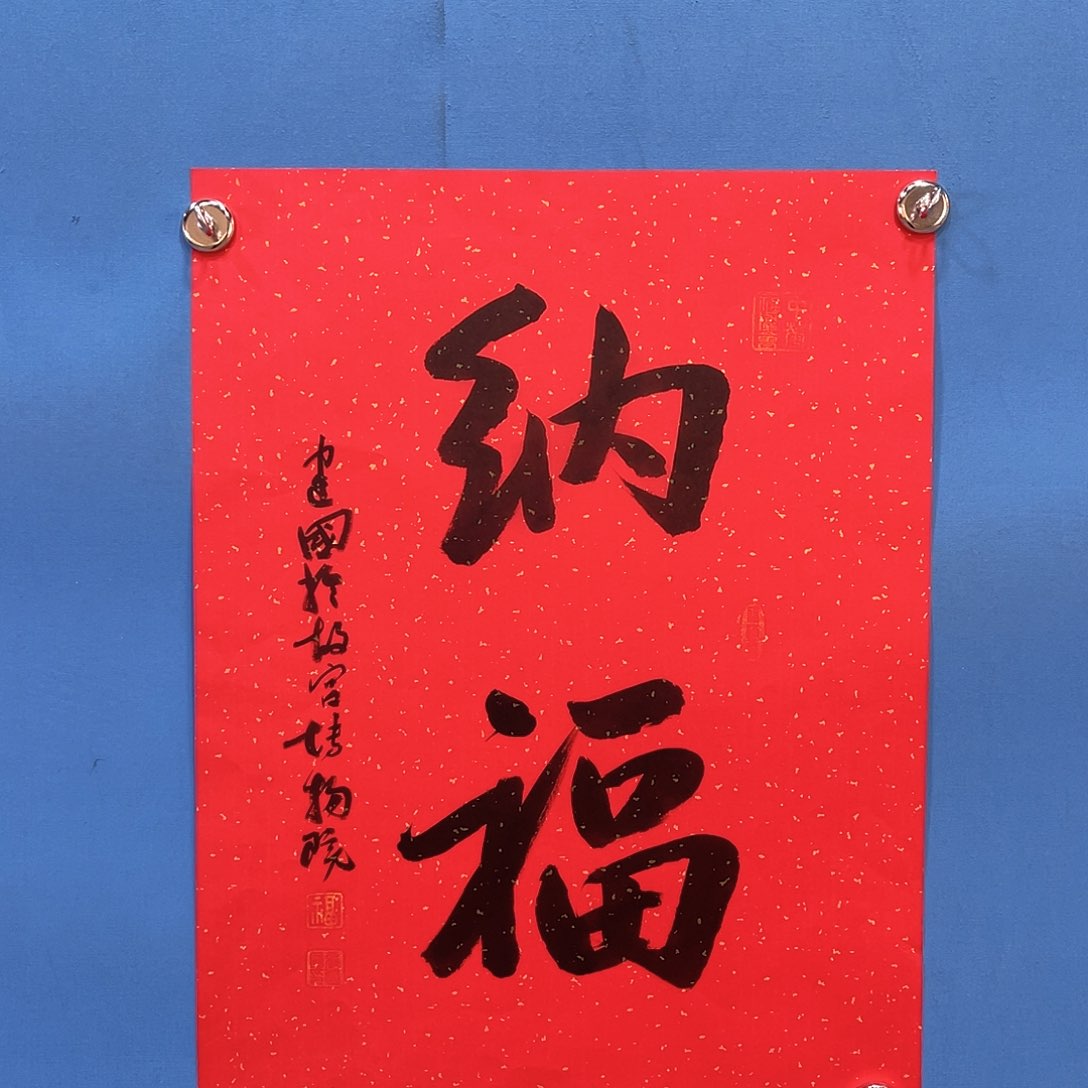 纳福
建國於故宫博物院
福